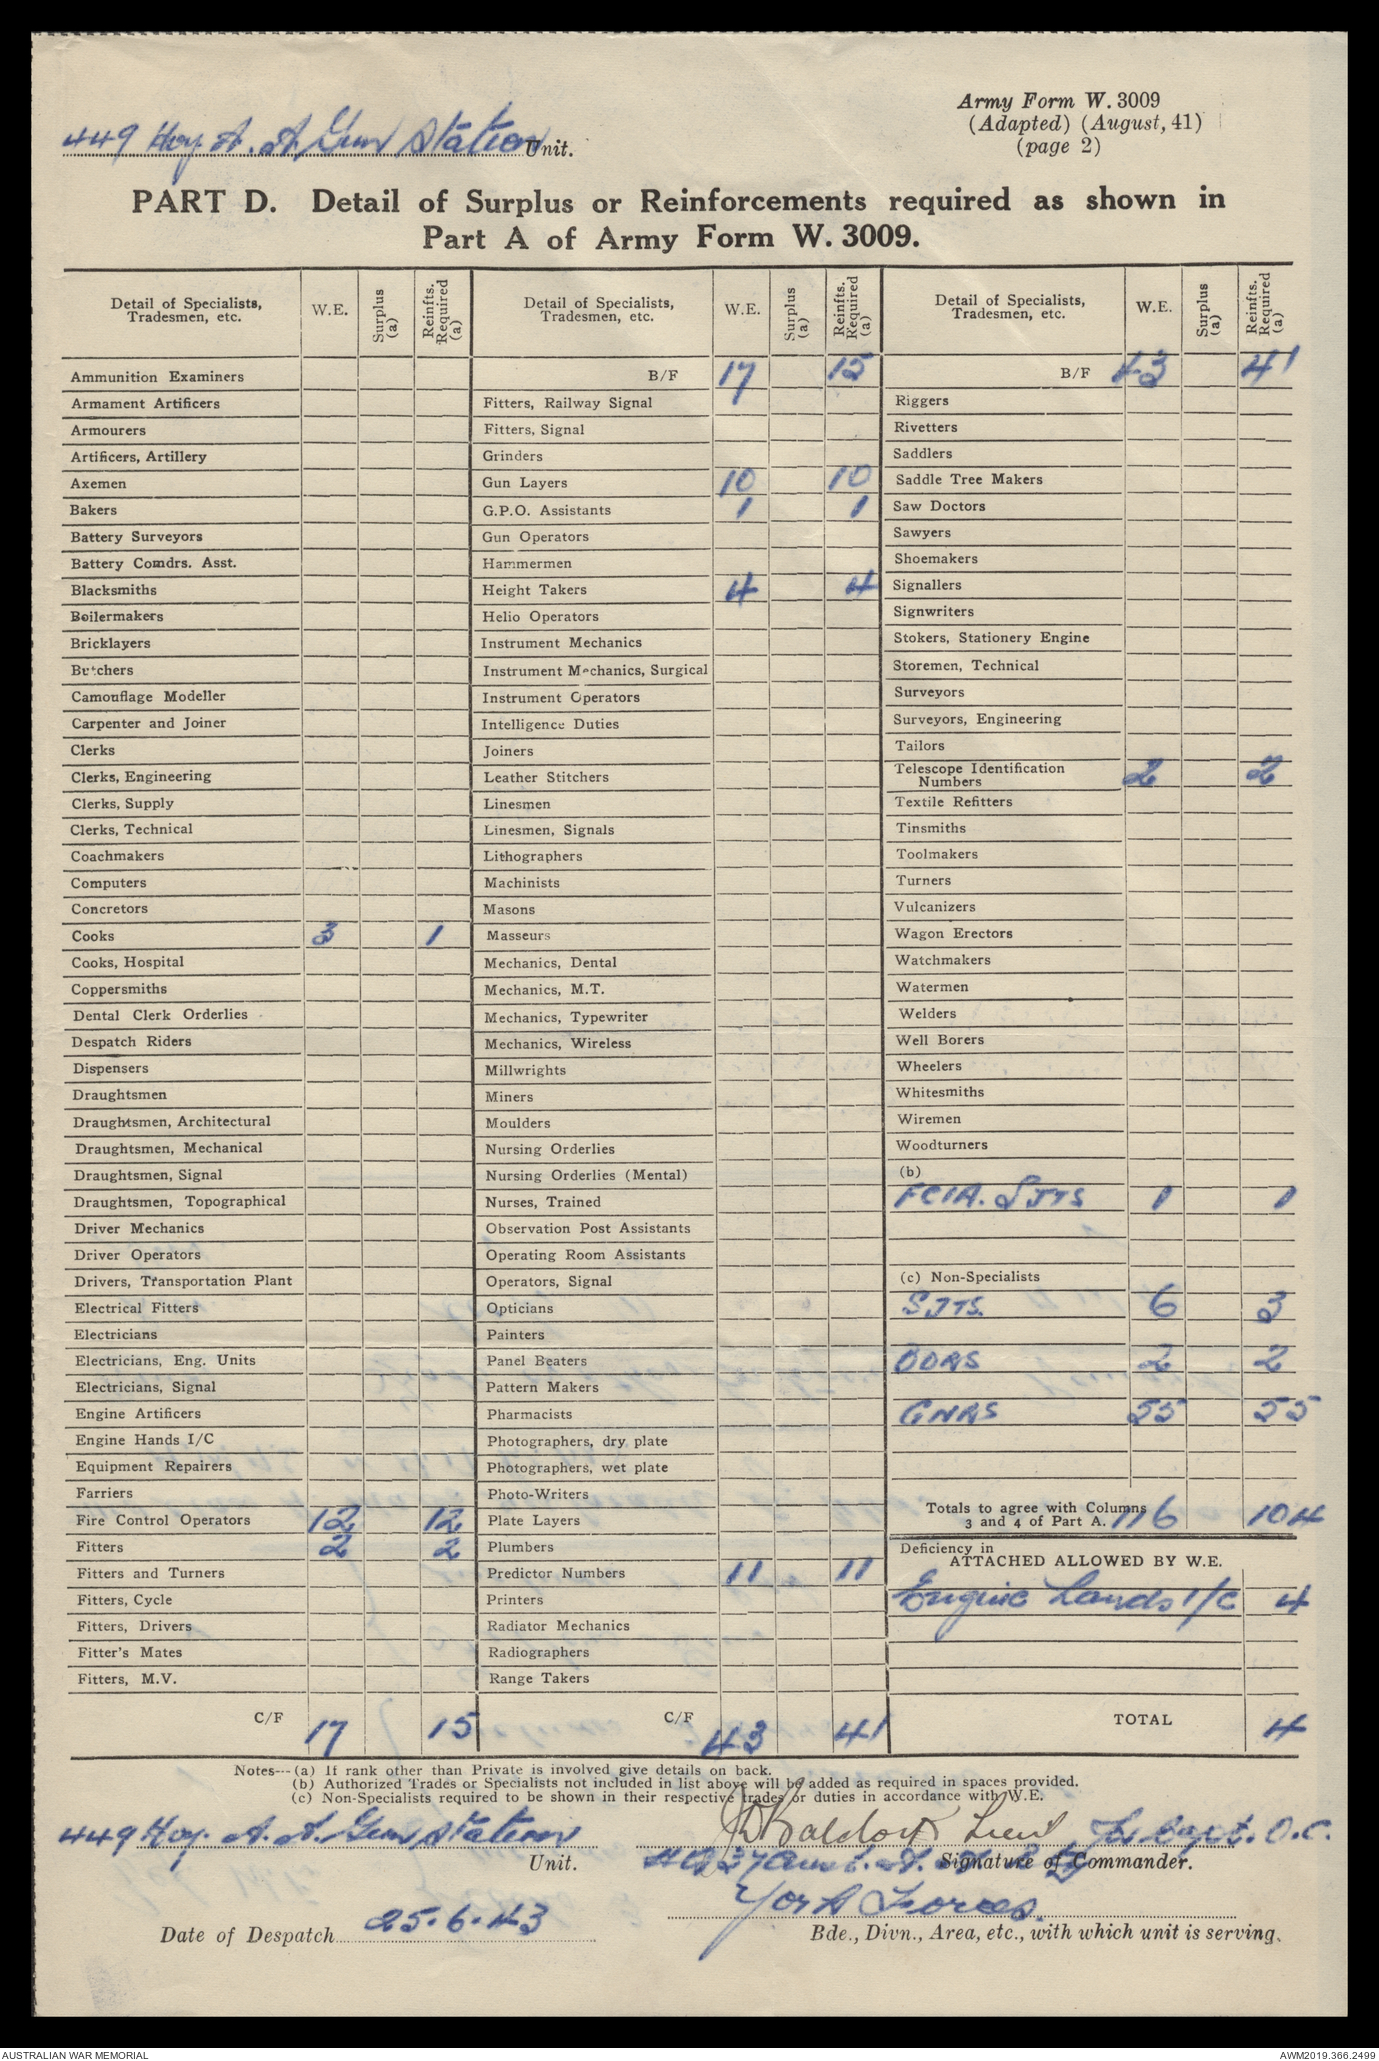 449 Hvy. A. A. Gun Station Unit.
Army Form W. 3009
(Adapted) (August, 41)
(page 2)
PART D. Detail of Surplus or Reinforcements required as shown in
Part A of Army Form W. 3009.
Detail of Specialists, Tradesmen, etc. W.E. Surplus (a) Reinfts. Required (a)
Ammunition Examiners
Armament Artificers
Armourers
Artificers, Artillery
Axemen
Bakers
Battery Surveyors
Battery Comdrs. Asst.
Blacksmiths
Boilermakers
Bricklayers
Butchers
Camouflage Modeller
Carpenter and Joiner
Clerks
Clerks, Engineering
Clerks, Supply
Clerks, Technical
Coachmakers
Computers
Concretors
Cooks 3 1
Cooks, Hospital
Coppersmiths
Dental Clerk Orderlies
Despatch Riders
Dispensers
Draughtsmen
Draughtsmen, Architectural
Draughtsmen, Mechanical
Draughtsmen, Signal
Draughtsmen, Topographical
Driver Mechanics
Driver Operators
Drivers, Transportation Plant
Electrical Fitters
Electricians
Electricians, Eng. Units
Electricians, Signal
Engine Artificers
Engine Hands I/C
Equipment Repairers
Farriers
Fire Control Operators 12 12
Fitters 2 2
Fitters and Turners
Fitters, Cycle
Fitters, Drivers
Fitter's Mates
Fitters, M.V.
C/F 17 15
Detail of Specialists, Tradesmen, etc. W.E. Surplus (a) Reinfts. Required (a)
B/F 17 15
Fitters, Railway Signal
Fitters, Signal
Grinders
Gun Layers 10 10
G.P.O. Assistants 1 1
Gun Operators
Hammermen
Height Takers 4 4
Helio Operators
Instrument Mechanics
Instrument Mechanics, Surgical
Instrument Operators
Intelligence Duties
Joiners
Leather Stitchers
Linesmen
Linesmen, Signals
Lithographers
Machinists
Masons
Masseurs
Mechanics, Dental
Mechanics, M.T.
Mechanics, Typewriter
Mechanics, Wireless
Millwrights
Miners
Moulders
Nursing Orderlies
Nursing Orderlies (Mental)
Nurses, Trained
Observation Post Assistants
Operating Room Assistants
Operators, Signal
Opticians
Painters
Panel Beaters
Pattern Makers
Pharmacists
Photographers, dry plate
Photographers, wet plate
Photo-Writers
Plate Layers
Plumbers
Predictor Numbers 11 11
Printers
Radiator Mechanics
Radiographers
Range Takers
C/F 43 41
Detail of Specialists, Tradesmen, etc. W.E. Surplus (a) Reinfts. Required (a)
B/F 43 41
Riggers
Rivetters
Saddlers
Saddle Tree Makers
Saw Doctors
Sawyers
Shoemakers
Signallers
Signwriters
Stokers, Stationery Engine
Storemen, Technical
Surveyors
Surveyors, Engineering
Tailors
Telescope Identification
Numbers 2 2
Textile Refitters
Tinsmiths
Toolmakers
Turners
Vulcanizers
Wagon Erectors
Watchmakers
Watermen
Welders
Well Borers
Wheelers
Whitesmiths
Wiremen
Woodturners
(b)
FCIA. SJTS 1 1
(c) Non-Specialists
SJTS. 6 3
BDRS 2 2
GNRS 55 55
Totals to agree with Columns
3 and 4 of Part A. 116 104
Deficiency in
ATTACHED ALLOWED BY W.E.
Engine Hands I/C 4
TOTAL 4
Notes---(a) If rank other than Private is involved give details on back.
(b) Authorized Trades or Specialists not included in list above will be added as required in spaces provided.
(c) Non-Specialists required to be shown in their respective trades or duties in accordance with W.E.
449 Hvy. A. A. Gun Station Lieut for Capt. O.C.
Unit. Signature of Commander.
York Force.
Date of Despatch 25.6.43
Bde., Divn., Area, etc., with which unit is serving.
AUSTRALIAN WAR MEMORIAL AWM2019.366.2499